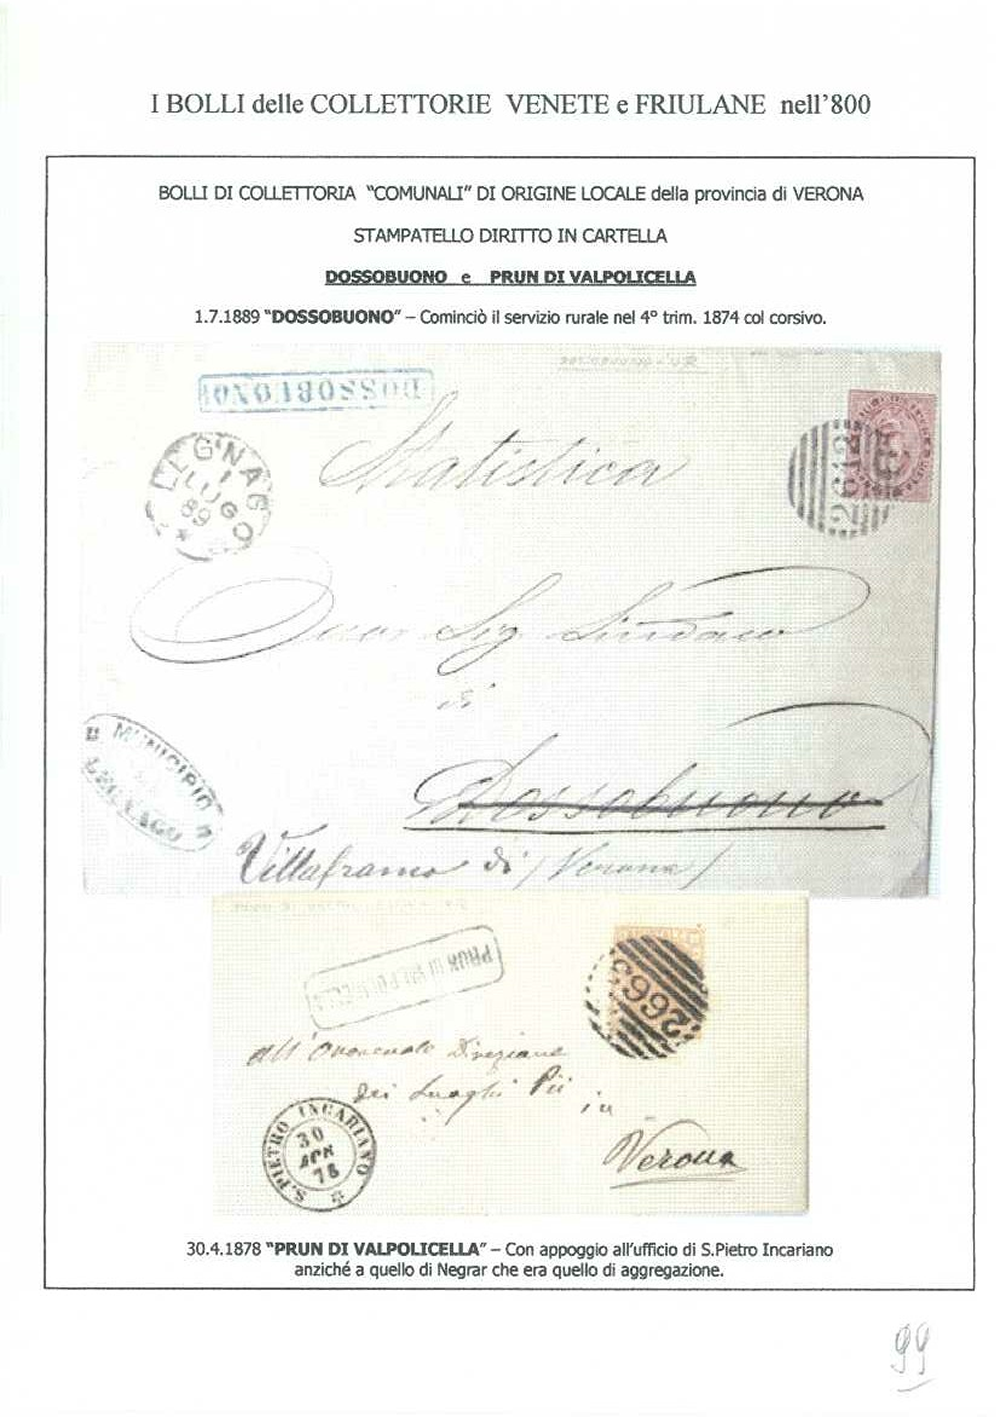 I BOLLI delle COLLETTORIE VENETE e FRIULANE nell'800
BOLLI DI COLLETTORIA "COMUNALI" DI ORIGINE LOCALE della provincia di VERONA
STAMPATELLO DIRITTO IN CARTELLA
DOSSOBUONO e PRUN DI VALPOLICELLA
1.7.1889 "DOSSOBUONO" – Cominciò il servizio rurale nel 4° trim. 1874 col corsivo.
DOSSOBUONO
Statistica
LEGNAGO
1
LUG
89
2612
Sig. Sindaco
di
Dossobuono
MUNICIPIO
LEGNAGO
Villafranca di (Verona)
PRUN DI VALPOLICELLA
2665
all'Onorevole Direzione
dei Luoghi Pii
in
Verona
S. PIETRO INCARIANO
30
APR
78
30.4.1878 "PRUN DI VALPOLICELLA" – Con appoggio all'ufficio di S.Pietro Incariano
anziché a quello di Negrar che era quello di aggregazione.
99